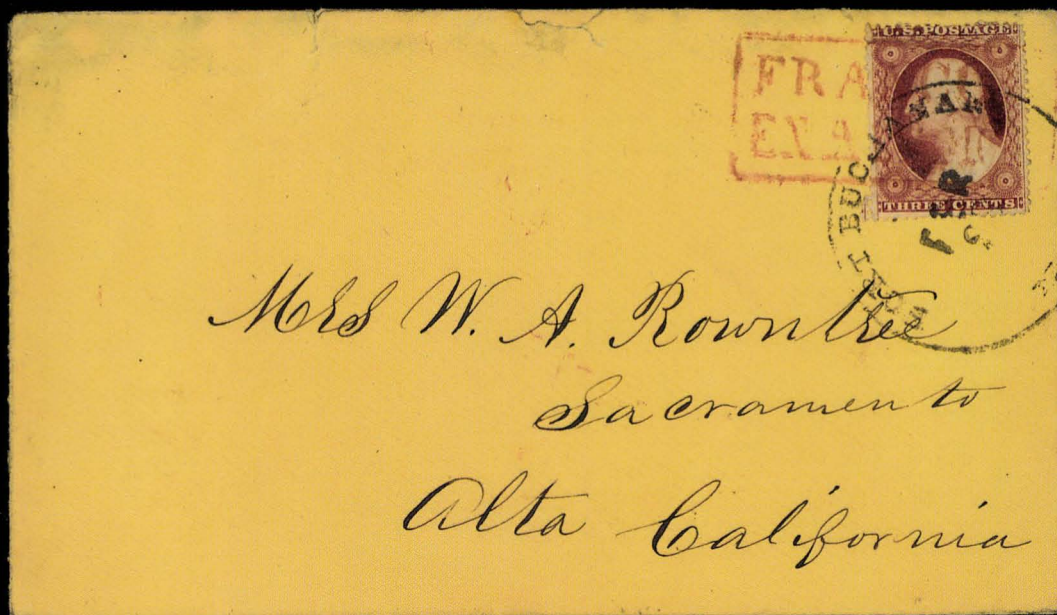 U.S. POSTAGE
FRA
THREE CENTS
FORT BUCHANAN
Mrs W. A. Rowntree
Sacramento
Alta California